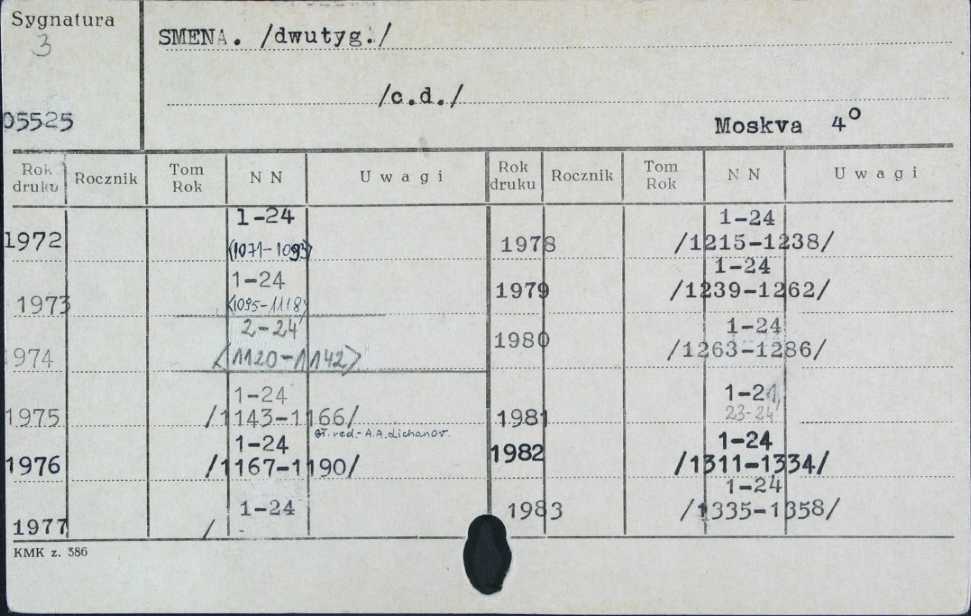 Sygnatura
3
05525
SMENA. /dwutyg./
/c.d./
Moskva 4°
Rok druku Rocznik Tom Rok NN Uwagi Rok druku Rocznik Tom Rok NN Uwagi
1972 1-24
1978 1-24 /1215-1238/
1973 1-24 <1095-1118>
1979 1-24 /1239-1262/
1974 2-24 <1120-1142>
1980 1-24 /1263-1286/
1975 1-24 /1143-1166/
1981 23-24
Gł. red.- A.A. Lichanov.
1976 1-24 /1167-1190/
1982 1-24 /1311-1334/
1977 1-24 /-
1983 1-24 /1335-1358/
KMK z. 386